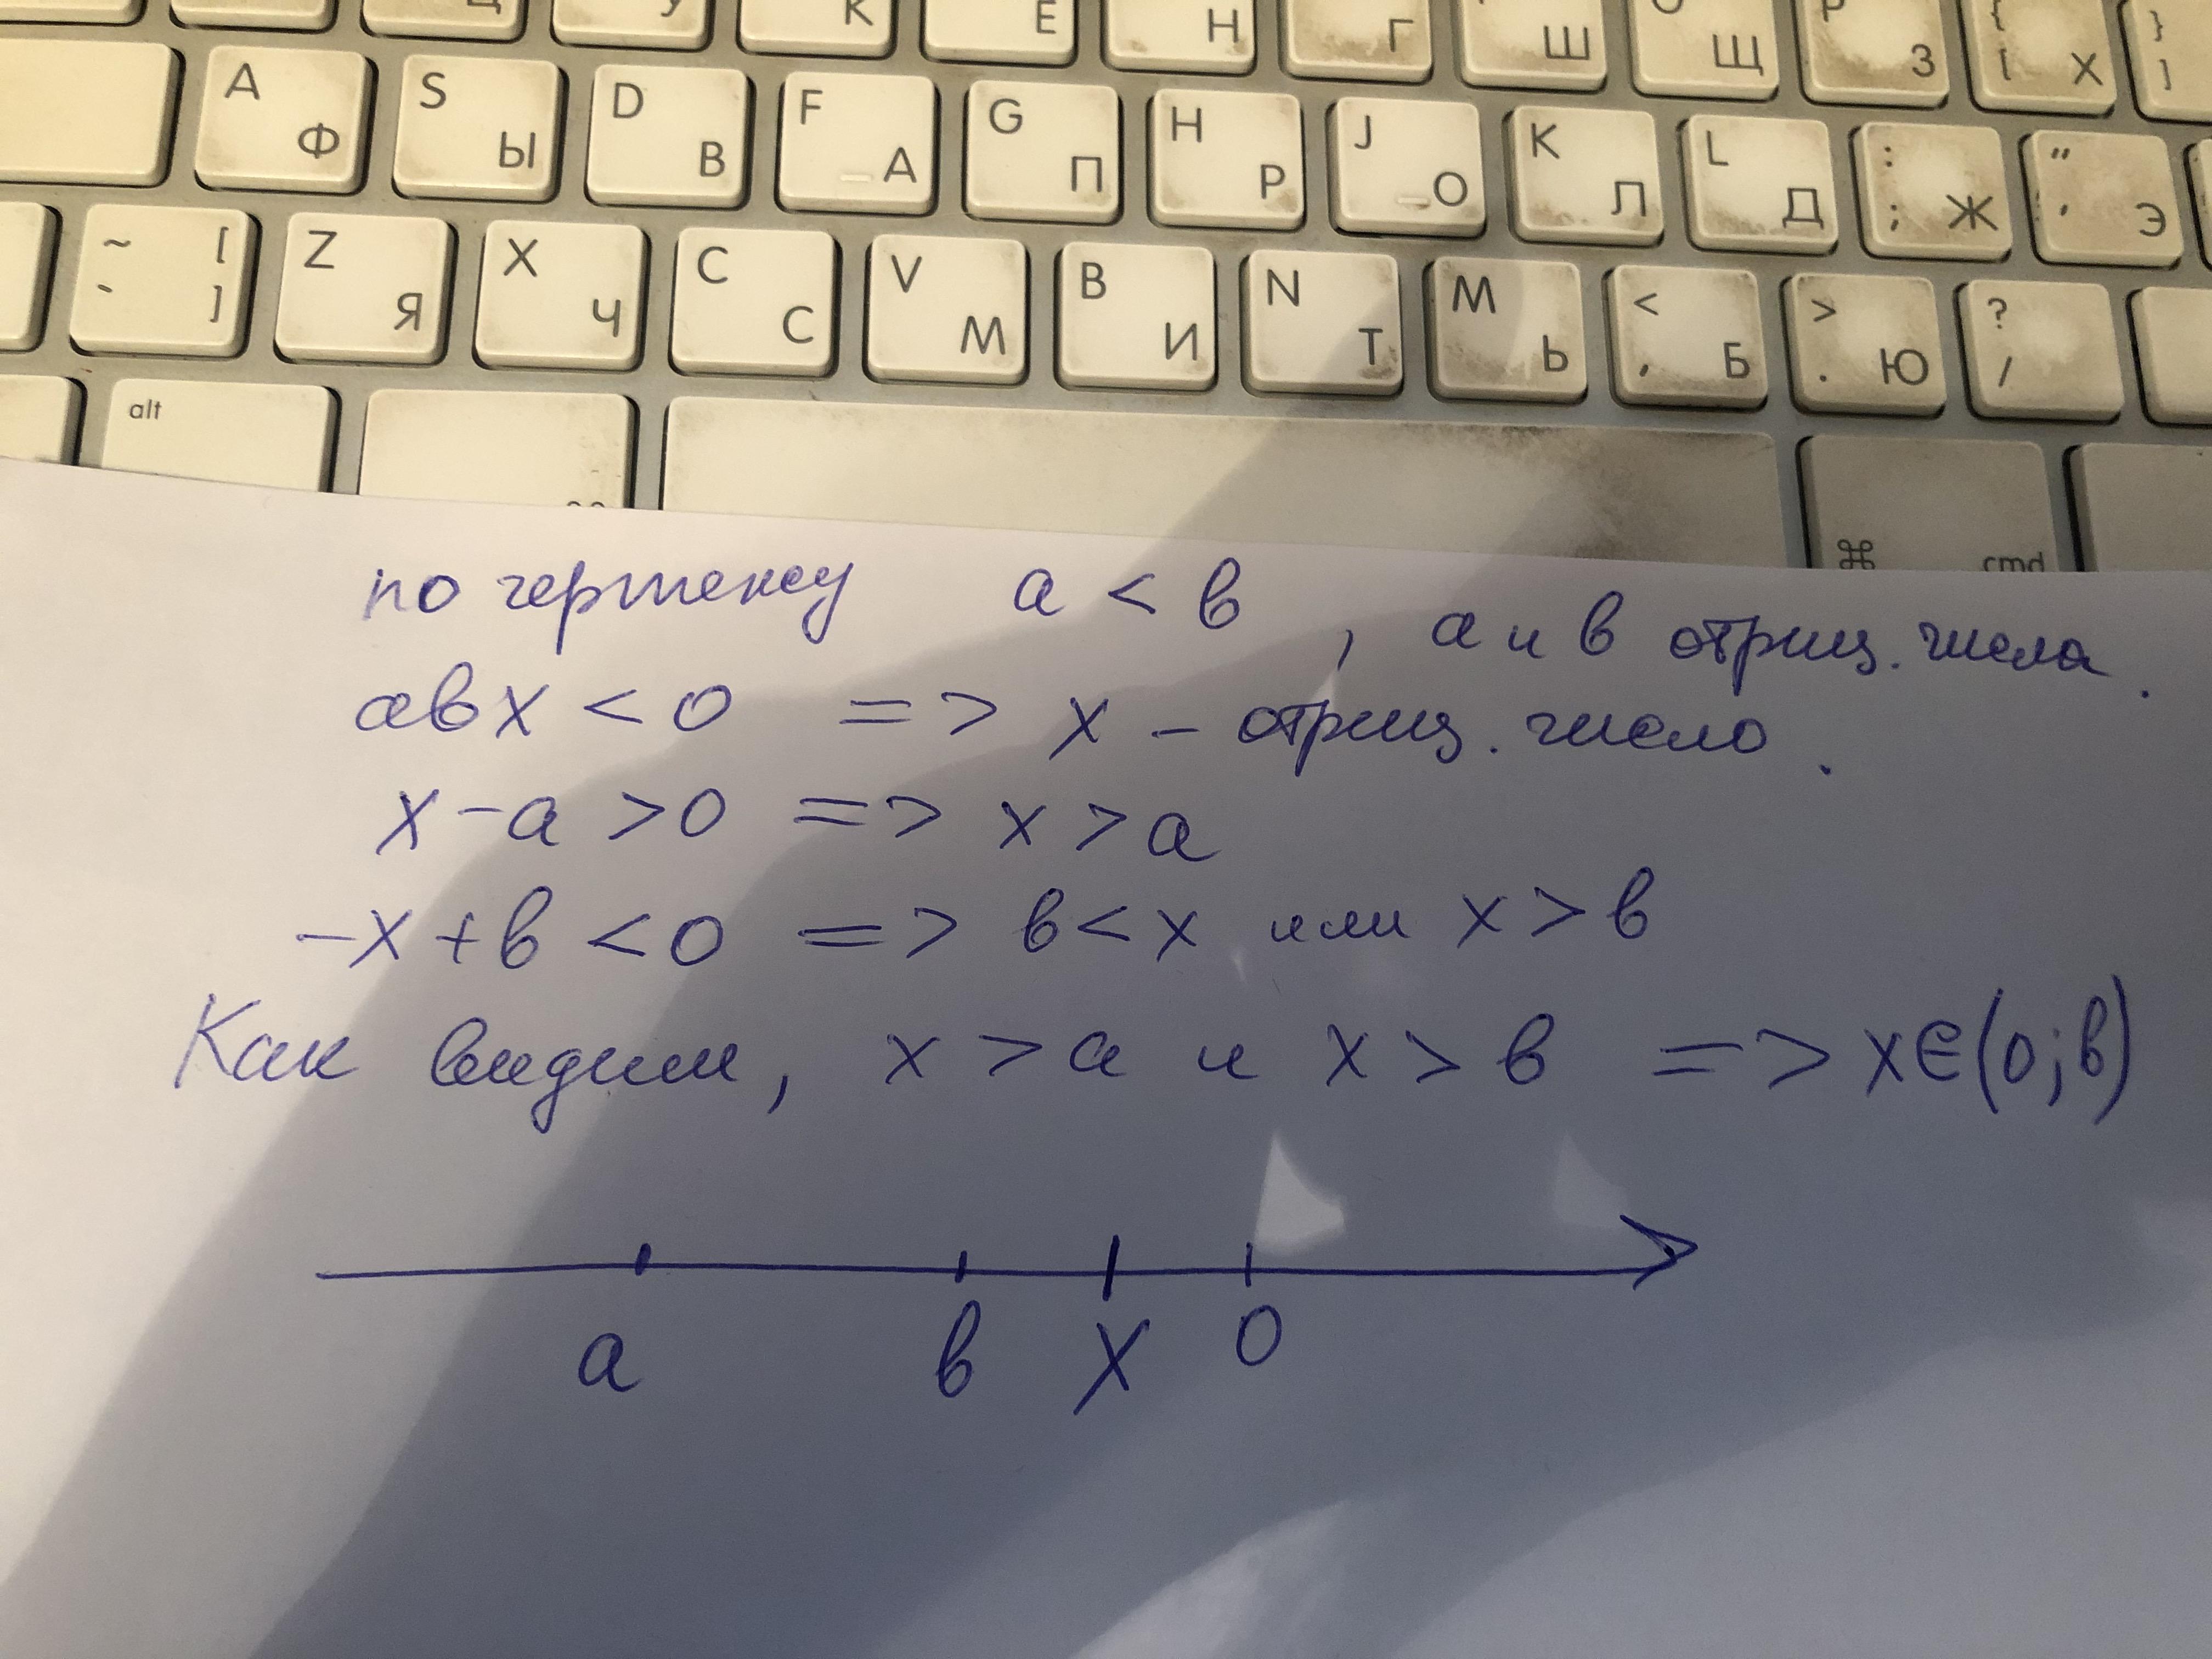 Ц У К Е Н Г Ш Щ P З { [ Х } ]
A Ф S Ы D В F А G П H Р J О K Л L Д : ; Ж " ' Э
~ ` [ ] Z Я X Ч C С V М B И N Т M Ь < , Б > . Ю ? /
alt ⌘ cmd
по чертежу a < в , a и в отриц. числа.
aвx < 0 => x – отриц. число.
x – a > 0 => x > a
–x + в < 0 => в < x или x > в
Как видим, x > a и x > в => x∈(0;в)
a в x 0